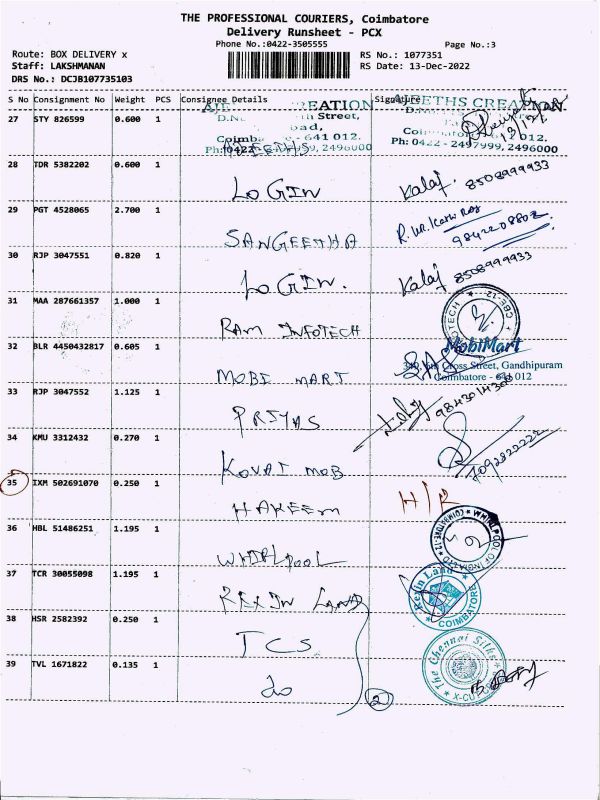 THE PROFESSIONAL COURIERS, Coimbatore
Delivery Runsheet - PCX
Phone No.:0422-3505555
Page No.:3
Route: BOX DELIVERY x
Staff: LAKSHMANAN
DRS No.: DCJB107735103
RS No.: 1077351
RS Date: 13-Dec-2022
S No Consignment No Weight PCS Consignee Details Signature
27 STY 826599 0.600 1
Ph: 0422 - 2497999, 2496000
28 TDR 5382202 0.600 1 LOGIN Kalaj. 8508999933
29 PGT 4528065 2.700 1 SANGEETHA
30 RJP 3047551 0.820 1 LOGIN. Kalaj 8508999933
31 MAA 287661357 1.000 1 RAM INFOTECH
32 BLR 4450432817 0.605 1 MOBI MART
MobiMart
Cross Street, Gandhipuram
Coimbatore - 641 012
33 RJP 3047552 1.125 1 PRIYAS
34 KMU 3312432 0.270 1 KOVAI MOB
35 IXM 502691070 0.250 1 HAKEEM H/R
36 HBL 51486251 1.195 1 WHIRLPOOL
WHIRLPOOL OF INDIA LTD
37 TCR 30055098 1.195 1 REXIN LAND
Rexin Land
COIMBATORE
38 HSR 2582392 0.250 1 TCS
The Chennai Silks
39 TVL 1671822 0.135 1 20 2